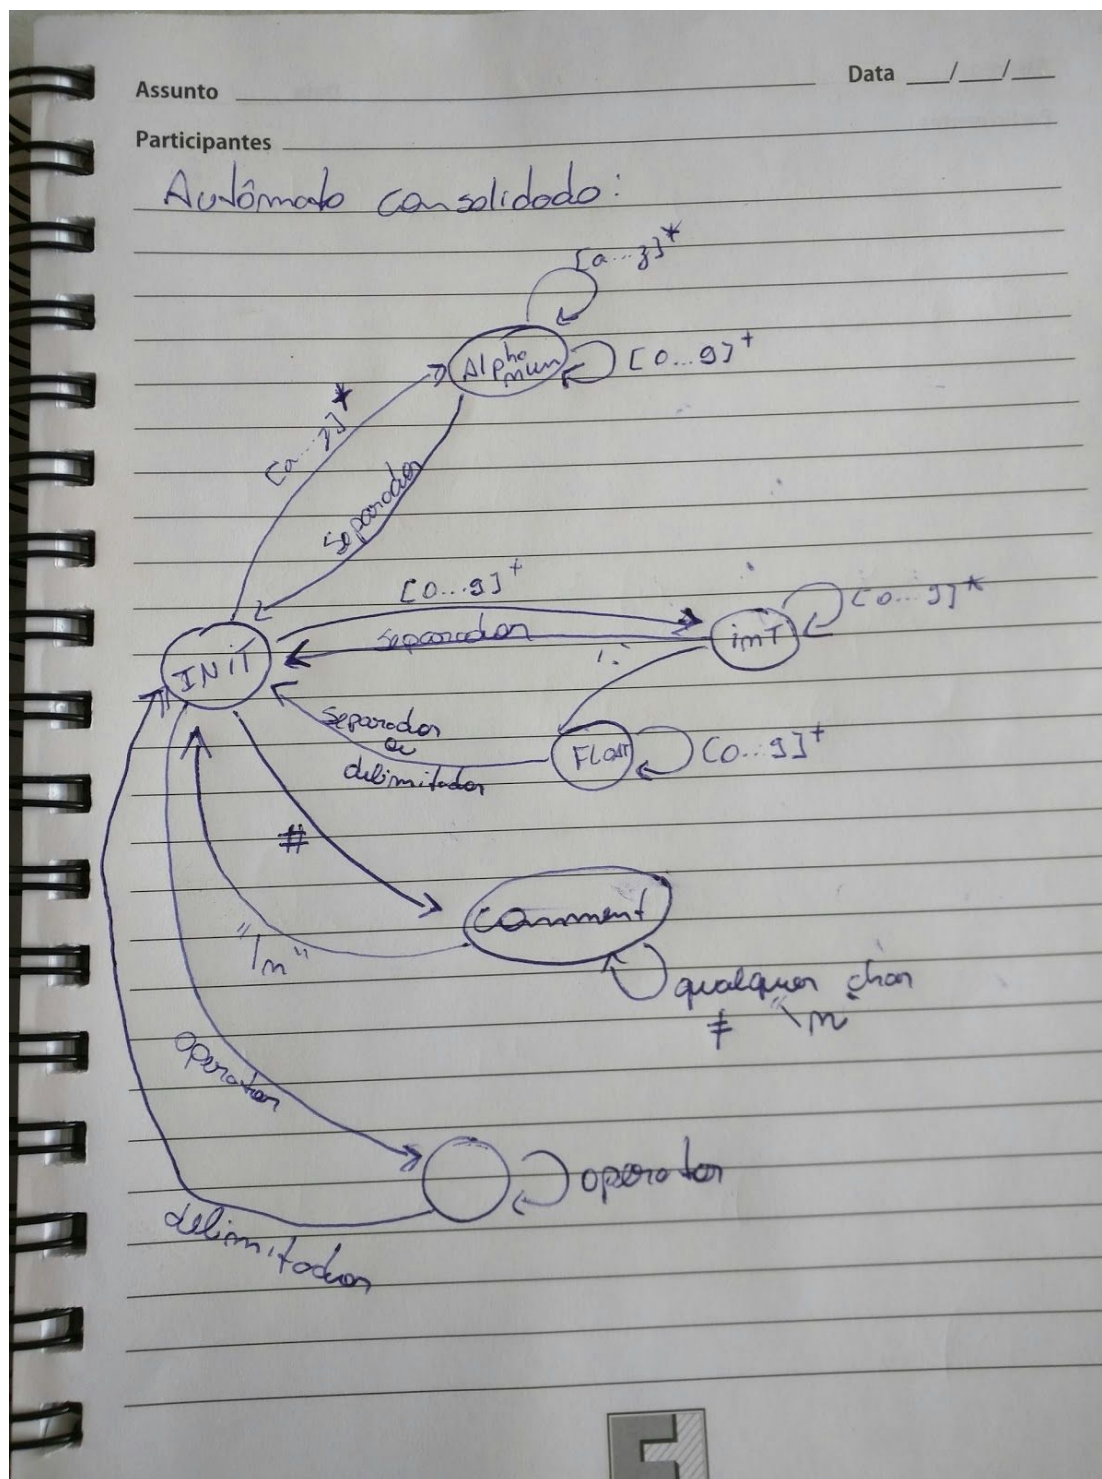 Data __/__/__
Assunto
Participantes
Autômato consolidado:
[a...z]*
Alpha
num
[0...9]+
[a...z]*
separador
[0...9]+
separador
INIT
int
[0...9]*
'.'
separador
ou
delimitador
Float
[0...9]+
#
comment
"/n"
qualquer char
≠ "\n
operator
operator
delimitador